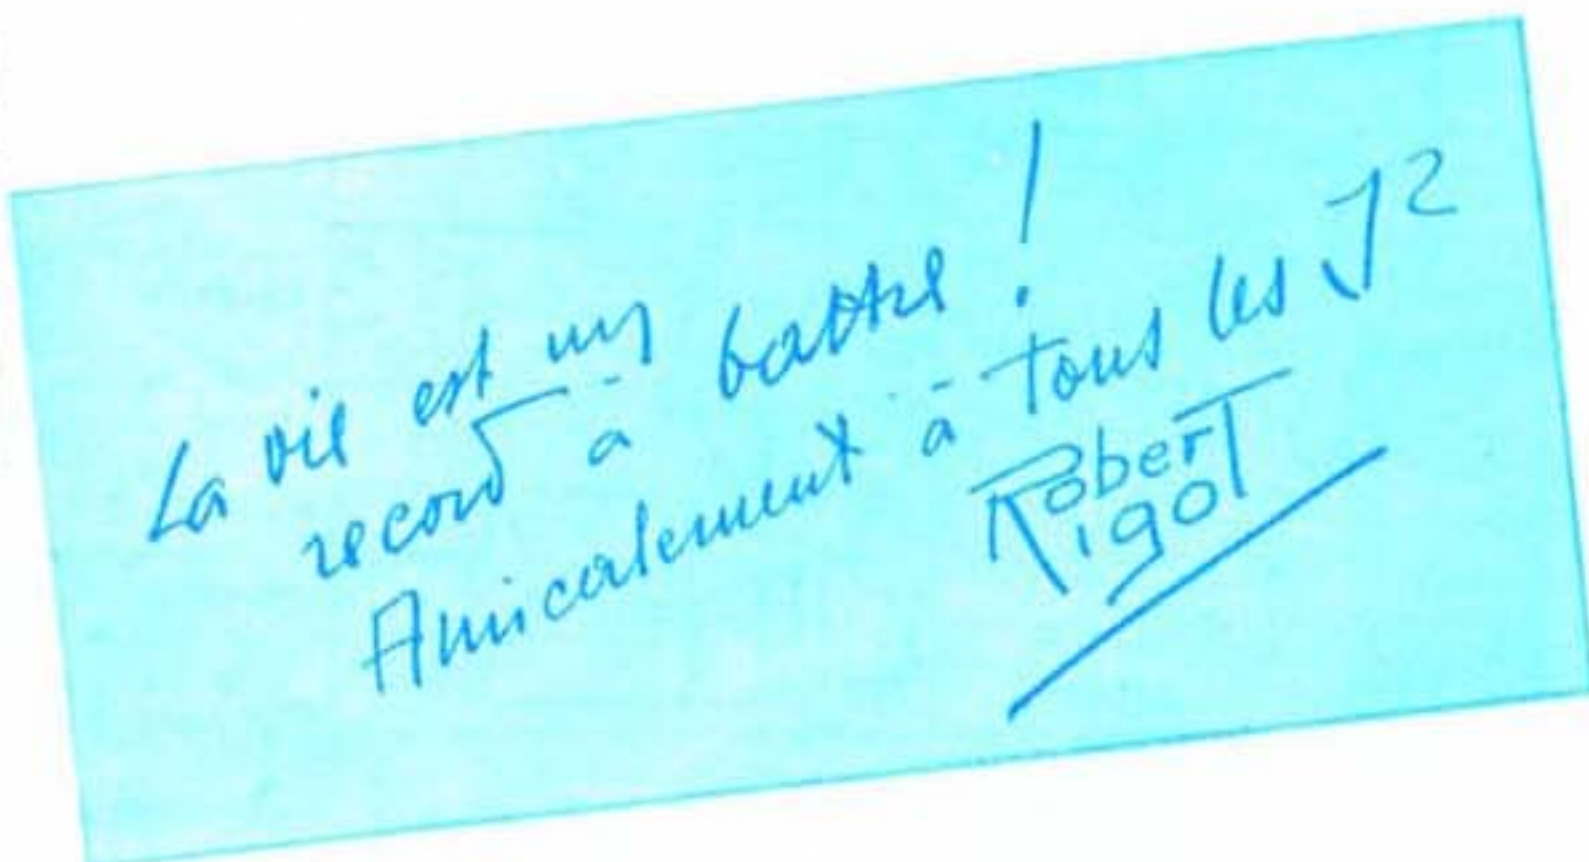 La vie est un
record à battre !
Amicalement à tous les J2
Robert
Rigot